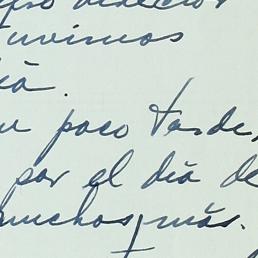 director
tuvimos
ía.
poco tarde,
por el día de
muchos más.